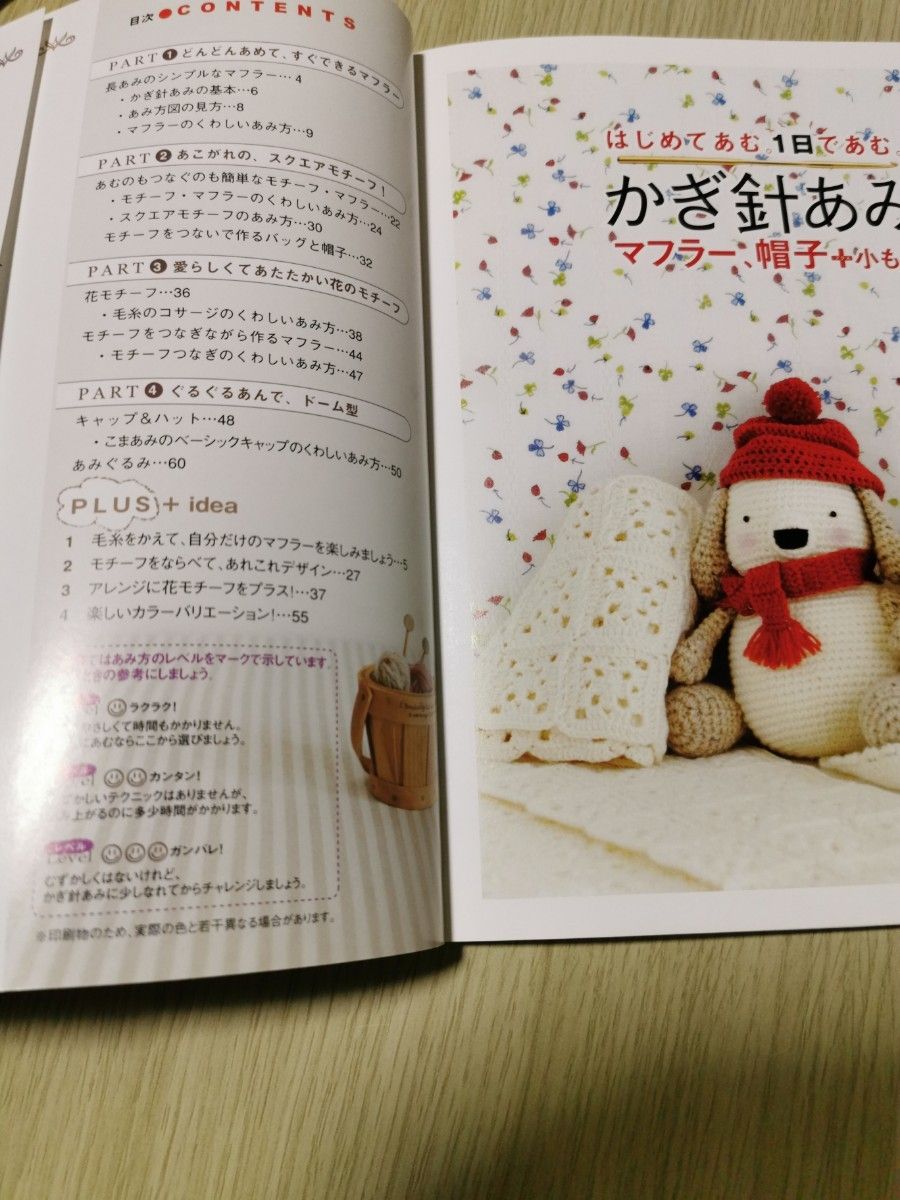 目次●CONTENTS
PART 1 どんどんあめて、すぐできるマフラー
長あみのシンプルなマフラー…4
・かぎ針あみの基本…6
・あみ方図の見方…8
・マフラーのくわしいあみ方…9
PART 2 あこがれの、スクエアモチーフ！
あむのもつなぐのも簡単なモチーフ・マフラー…22
・モチーフ・マフラーのくわしいあみ方…24
・スクエアモチーフのあみ方…30
モチーフをつないで作るバッグと帽子…32
PART 3 愛らしくてあたたかい花のモチーフ
花モチーフ…36
・毛糸のコサージのくわしいあみ方…38
モチーフをつなぎながら作るマフラー…44
・モチーフつなぎのくわしいあみ方…47
PART 4 ぐるぐるあんで、ドーム型
キャップ＆ハット…48
・こまあみのベーシックキャップのくわしいあみ方…50
あみぐるみ…60
PLUS+ idea
1 毛糸をかえて、自分だけのマフラーを楽しみましょう…5
2 モチーフをならべて、あれこれデザイン…27
3 アレンジに花モチーフをプラス!…37
4 楽しいカラーバリエーション!…55
ではあみ方のレベルをマークで示しています
きの参考にしましょう。
ラクラク!
さしくて時間もかかりません。
あむならここから選びましょう。
カンタン!
かしいテクニックはありませんが、
み上がるのに多少時間がかかります。
レベル ガンバレ!
むずかしくはないけれど、
かぎ針あみに少しなれてからチャレンジしましょう。
※印刷物のため、実際の色と若干異なる場合があります。
はじめてあむ。1日であむ。
かぎ針あみ
マフラー、帽子+小も